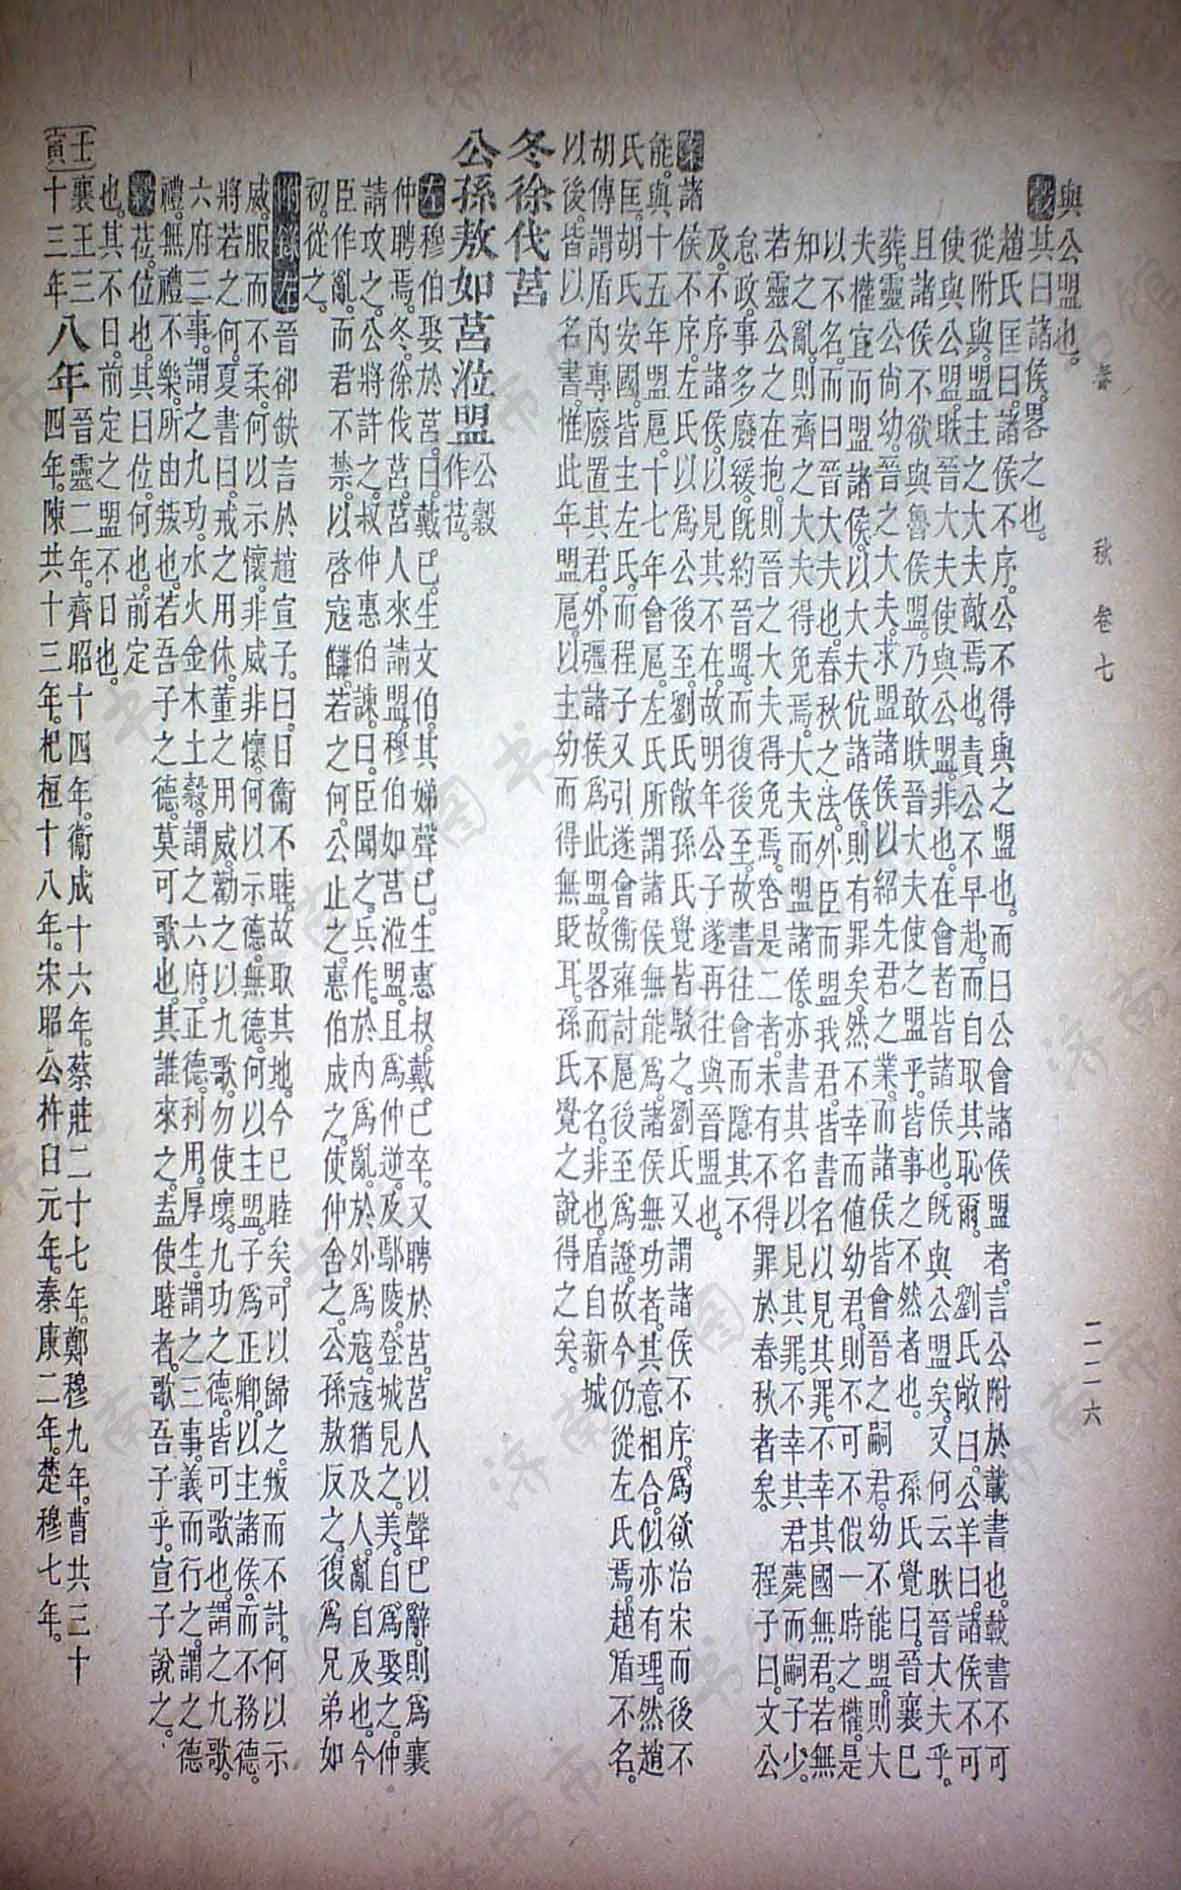 春秋卷七 二二六
與公盟也。
穀其曰諸侯。畧之也。
趙氏匡曰。諸侯不序。公不得與之盟也。而曰公會諸侯盟者。言公附於載書也。載書不可
從附與盟主之大夫敵焉也。責公不早赴。而自取其恥爾。 劉氏敞曰。公羊曰。諸侯不可
使與公盟。眣晉大夫使與公盟。非也。在會者皆諸侯也。既與公盟矣。又何云眣晉大夫乎。
且諸侯不欲與魯侯盟。乃敢眣晉大夫使之盟乎。皆事之不然者也。 孫氏覺曰。晉襄已
葬。靈公尚幼。晉之大夫。求盟諸侯。以紹先君之業。而諸侯皆會晉之嗣君。幼不能盟。則大
夫權宜而盟諸侯。以大夫伉諸侯。則有罪矣。然不幸而值幼君。則不可不假一時之權。是
以不名。而曰晉大夫也。春秋之法。外臣而盟我君。皆書名以見其罪。不幸其國無君。若無
知之亂。則齊之大夫得免焉。大夫而盟諸侯。亦書其名以見其罪。不幸其君薨而嗣子少。
若靈公之在抱。則晉之大夫得免焉。舍是二者。未有不得罪於春秋者矣。 程子曰。文公
怠政。事多廢緩。既約晉盟。而復後至。故書往會而隱其不
及。不序諸侯。以見其不在。故明年公子遂再往與晉盟也。
案諸侯不序。左氏以爲公後至。劉氏敞孫氏覺皆駁之。劉氏又謂諸侯不序。爲欲治宋而後不
能。與十五年盟扈。十七年會扈。左氏所謂諸侯無能爲。諸侯無功者。其意相合。似亦有理。然趙
氏匡。胡氏安國。皆主左氏。而程子又引遂會衡雍討扈後至爲證。故今仍從左氏焉。趙盾不名。
胡傳謂盾內專廢置其君。外彊諸侯爲此盟。故畧而不名。非也。盾自新城
以後。皆以名書。惟此年盟扈。以主幼而得無貶耳。孫氏覺之說得之矣。
冬徐伐莒
公孫敖如莒涖盟公穀作莅。
左穆伯娶於莒。曰戴己。生文伯。其娣聲己。生惠叔。戴己卒。又聘於莒。莒人以聲己辭。則爲襄
仲聘焉。冬。徐伐莒。莒人來請盟。穆伯如莒涖盟。且爲仲逆。及鄢陵。登城見之。美。自爲娶之。仲
請攻之。公將許之。叔仲惠伯諫。曰。臣聞之。兵作。於內爲亂。於外爲寇。寇猶及人。亂自及也。今
臣作亂。而君不禁。以啓寇讎。若之何。公止之。惠伯成之。使仲舍之。公孫敖反之。復爲兄弟如
初。從之。
附錄左晉卻缺言於趙宣子。曰。日衞不睦。故取其地。今已睦矣。可以歸之。叛而不討。何以示
威。服而不柔。何以示懷。非威非懷。何以示德。無德。何以主盟。子爲正卿。以主諸侯。而不務德。
將若之何。夏書曰。戒之用休。董之用威。勸之以九歌。勿使壞。九功之德。皆可歌也。謂之九歌。
六府三事。謂之九功。水火金木土穀。謂之六府。正德。利用。厚生。謂之三事。義而行之。謂之德
禮。無禮不樂。所由叛也。若吾子之德。莫可歌也。其誰來之。盍使睦者。歌吾子乎。宣子說之。
穀莅。位也。其曰位。何也。前定
也。其不日。前定之盟不日也。
壬寅襄王三十三年八年晉靈二年。齊昭十四年。衞成十六年。蔡莊二十七年。鄭穆九年。曹共三十四年。陳共十三年。杞桓十八年。宋昭公杵臼元年。秦康二年。楚穆七年。